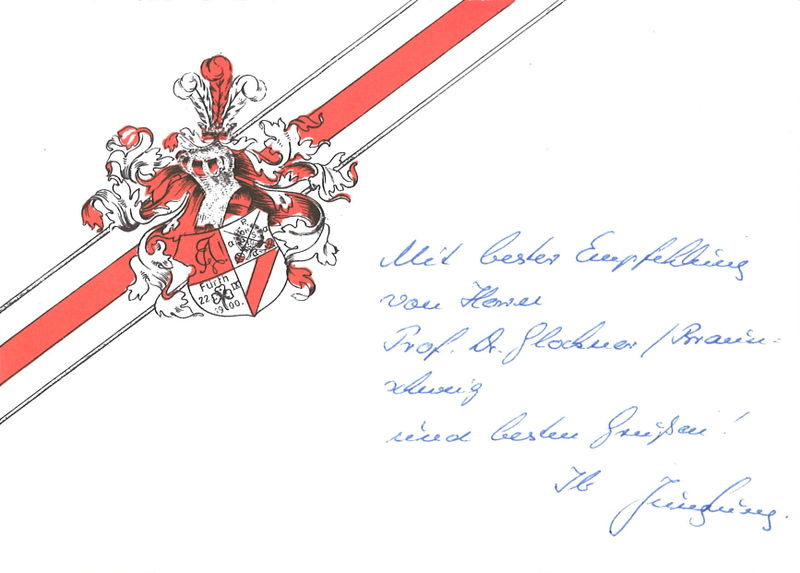 Fürth
22. IX
1900.
Mit bester Empfehlung
von Herrn
Prof. Dr. Glockner / Braun-
schweig
und besten Grüßen!
Ihr